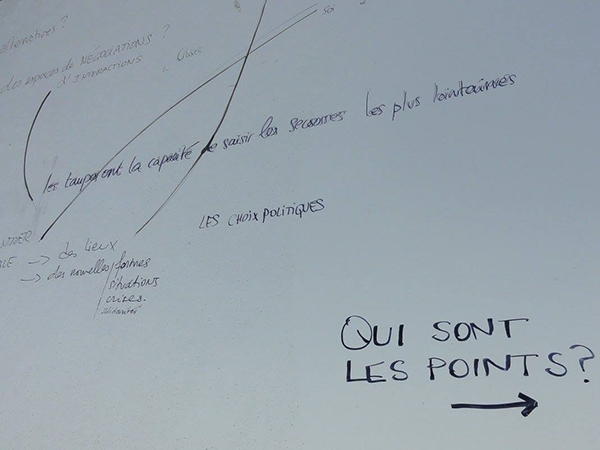 alternatives ?
des espaces de NÉGOCIATIONS ?
d'INTERACTIONS
Crises
soi
les taupes ont la capacité de saisir les secousses les plus lointaines
LES CHOIX POLITIQUES
→ des lieux
→ des nouvelles / formes
situations
crises.
solidarités
QUI SONT
LES POINTS ?
→